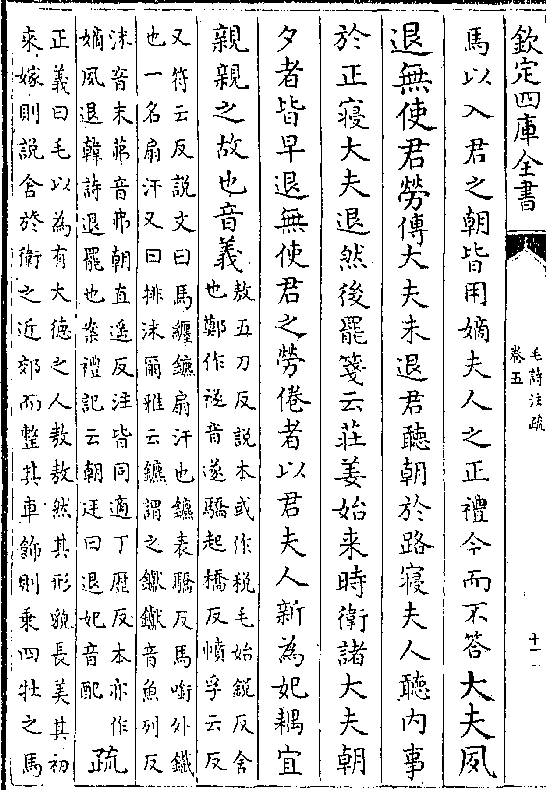 欽定四庫全書
毛詩注疏
卷五
十一
馬以入君之朝皆用嫡夫人之正禮今而不答大夫夙
退無使君勞傳大夫未退君聽朝於路寢夫人聽內事
於正寢大夫退然後罷箋云莊姜始来時衛諸大夫朝
夕者皆早退無使君之勞倦者以君夫人新為妃耦宜
親親之故也音義
敖五刀反説本或作税毛始鋭反舍
也鄭作襚音遂驕起橋反幩孚云反
又符云反説文曰馬纒鑣扇汗也鑣表驕反馬銜外鐵
也一名扇汗又曰排沫爾雅云鑣謂之钀钀音魚列反
沫音末茀音弗朝直遥反注皆同適丁厯反本亦作
嫡夙退韓詩退罷也案禮記云朝廷曰退妃音配
疏
正義曰毛以為有大德之人敖敖然其形貌長美其初
來嫁則説舍於衛之近郊而整其車飾則乗四牡之馬